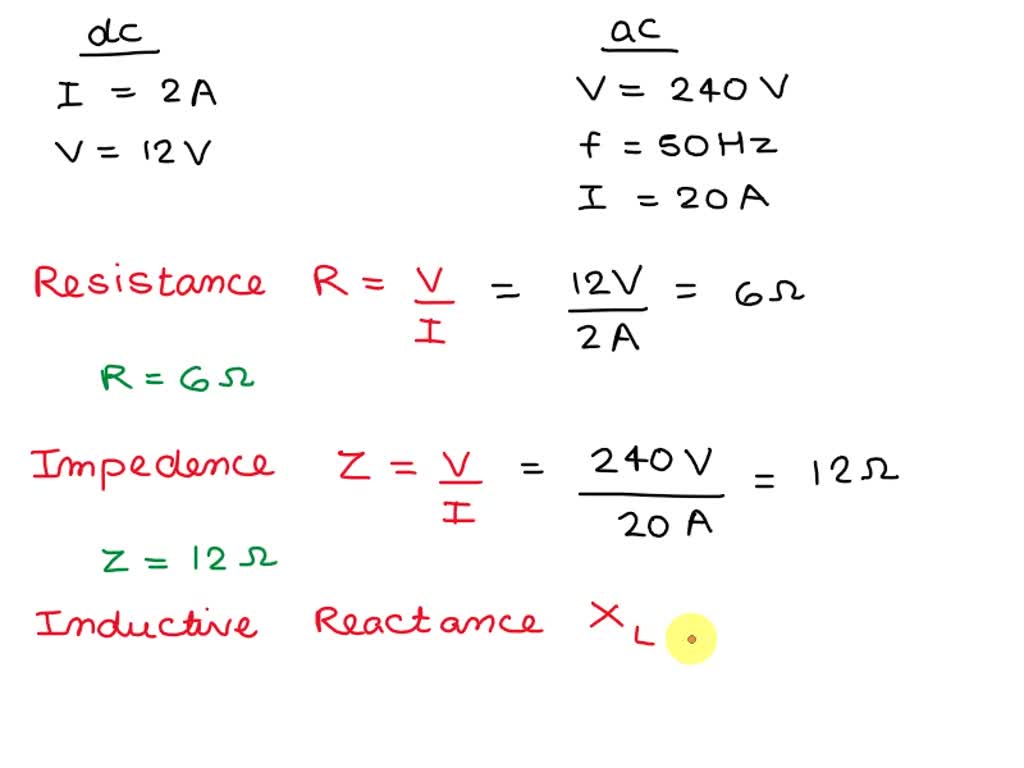 dc
ac
I = 2A
V = 240 V
V = 12V
f = 50Hz
I = 20A
Resistance R = V/I = 12V/2A = 6Ω
R = 6Ω
Impedence Z = V/I = 240V/20A = 12Ω
Z = 12Ω
Inductive Reactance X_L